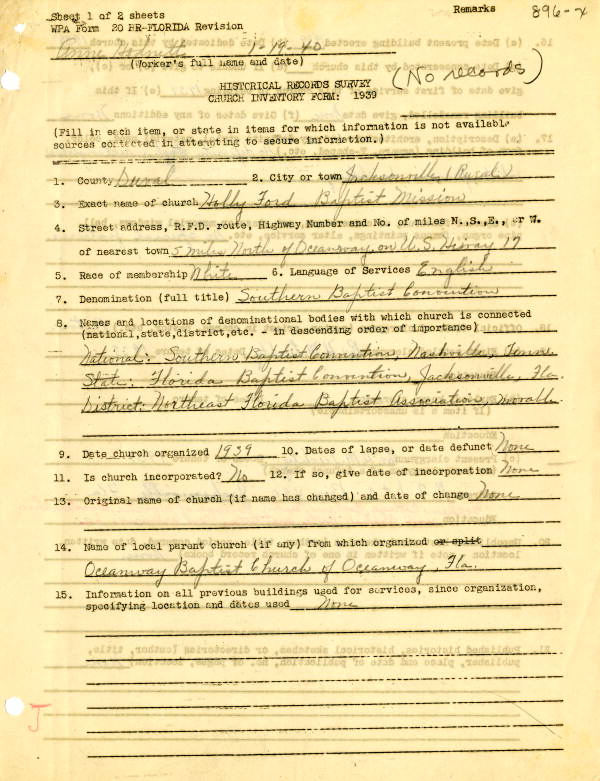 Sheet 1 of 2 sheets
Remarks
896-x
WPA Form 20 HR-FLORIDA Revision
1-19-40
(Worker's full name and date)
HISTORICAL RECORDS SURVEY
(No records)
CHURCH INVENTORY FORM: 1939
(Fill in each item, or state in items for which information is not available
sources contacted in attempting to secure information.)
1. County Duval 2. City or town Jacksonville (Rural)
3. Exact name of church Holly Ford Baptist Mission
4. Street address, R.F.D. route, Highway Number and No. of miles N.,S.,E., or W.
of nearest town 5 miles North of Oceanway, on U.S. Hiway 17
5. Race of membership White 6. Language of Services English
7. Denomination (full title) Southern Baptist Convention
8. Names and locations of denominational bodies with which church is connected
(national,state,district,etc. - in descending order of importance)
National: Southern Baptist Convention, Nashville, Tenn.
State: Florida Baptist Convention, Jacksonville, Fla.
District: Northeast Florida Baptist Association,
9. Date church organized 1939 10. Dates of lapse, or date defunct None
11. Is church incorporated? No 12. If so, give date of incorporation None
13. Original name of church (if name has changed) and date of change None
14. Name of local parent church (if any) from which organized or split
Oceanway Baptist Church of Oceanway, Fla.
15. Information on all previous buildings used for services, since organization,
specifying location and dates used None
J